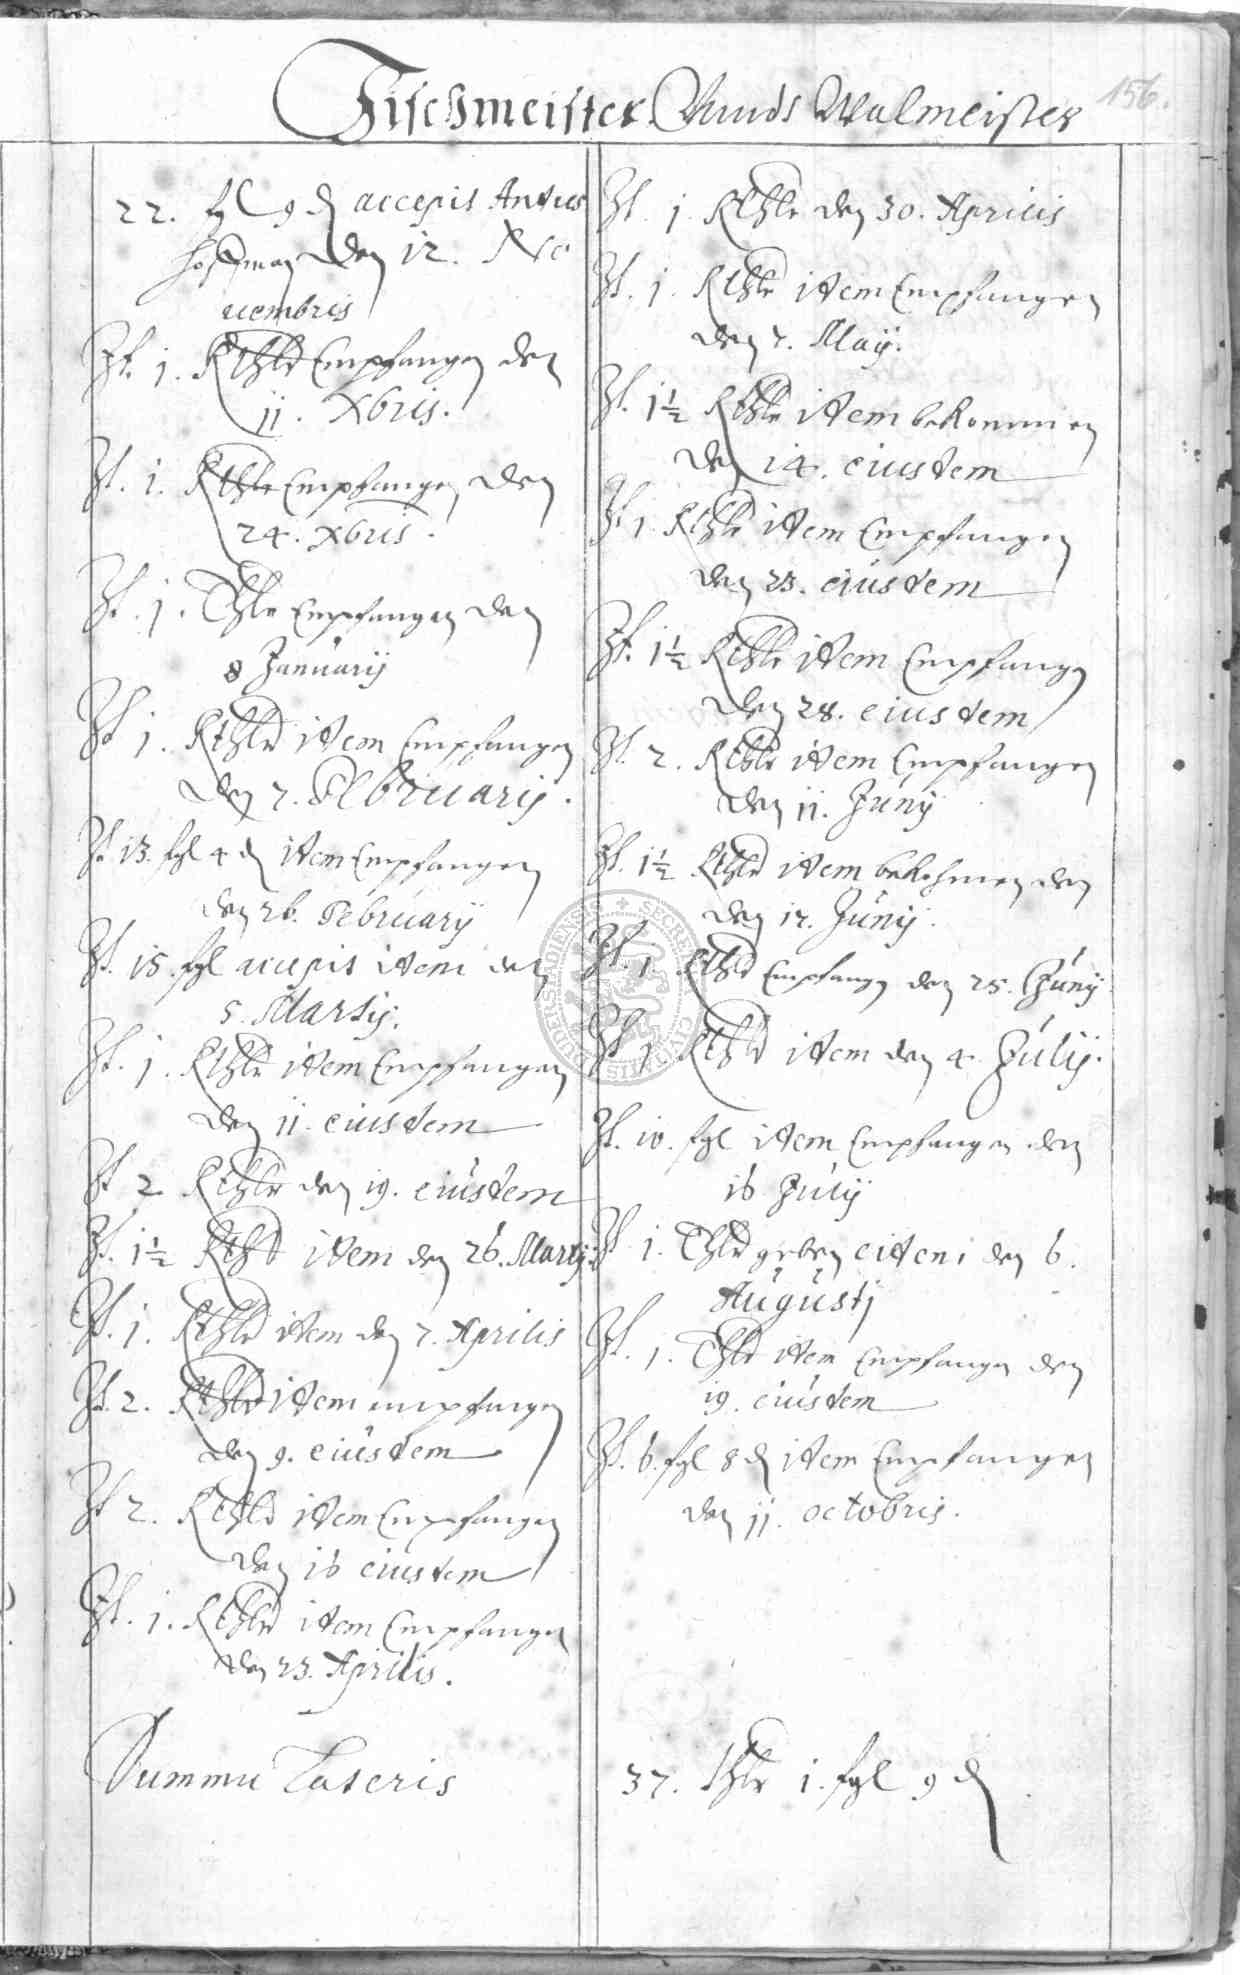 Fischmeister Vnndt Walmeister
156.
22. fgl 9 ₰ accepit Antus
hoffman den 12. No
uembris
It. 1. Rthlr Empfangen den
11. Xbris.
It. 1. Rthlr Empfangen den
24. Xbris.
It. 1. Thlr Empfangen den
8 Januarij
It 1. Rthlr item Empfangen
den 7. Februarij.
It 13. fgl 4 ₰ item Empfangen
den 26. Februarij
It. 15. fgl accepit item den
5. Martij.
It. 1. Rthlr item Empfangen
den 11. eiusdem
It 2 Rthlr den 19. eiusdem
It. 1½ Rthlr item den 26. Martij
It. 1. Rthlr item den 7. Aprilis
It. 2. Rthlr item empfangen
den 9. eiusdem
It 2. Rthlr item Empfangen
den 16 eiusdem
It. 1. Rthlr item Empfangen
den 23. Aprilis.
Summa Lateris
It. 1. Rthlr den 30. Aprilis
It. 1. Rthlr item Empfangen
den 7. Maij.
It. 1½ Rthlr item bekommen
den 14. eiusdem
It 1. Rthlr item Empfangen
den 23. eiusdem
It. 1½ Rthlr item Empfangen
den 28. eiusdem
It. 2. Rthlr item Empfangen
den 11. Junij
It. 1½ Rthlr item bekohmen den
den 17. Junij.
It. 1. Rthlr Empfangen den 25. Junij
It 1. Rthlr item den 4. Julij.
It. 10. fgl item Empfangen den
16 Julij
It 1. Thlr geben eitem den 6.
Augustj
It. 1. Thlr item Empfangen den
19. eiusdem
It. 6. fgl 8 ₰ item Empfangen
den 11. octobris.
37. Thlr 1. fgl 9 ₰
SECRET CIVITATIS DUDERSTADIENSIS